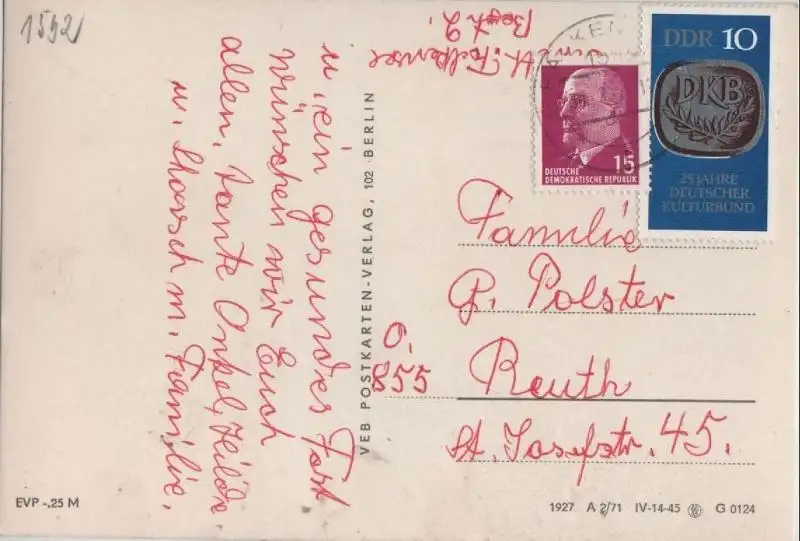 1592
u. ein gesundes Fest
wünschen wir Euch
allen, Tante, Onkel, Heidi
u. m. Familie.
Best. 2.
DDR 10
DKB
25 JAHRE
DEUTSCHER
KULTURBUND
15
DEUTSCHE
DEMOKRATISCHE REPUBLIK
VEB POSTKARTEN-VERLAG, 102 BERLIN
Familie
G. Polster
O.
855 Reuth
St. Josefstr. 45.
EVP -.25 M
1927 A 2/71 IV-14-45 G 0124